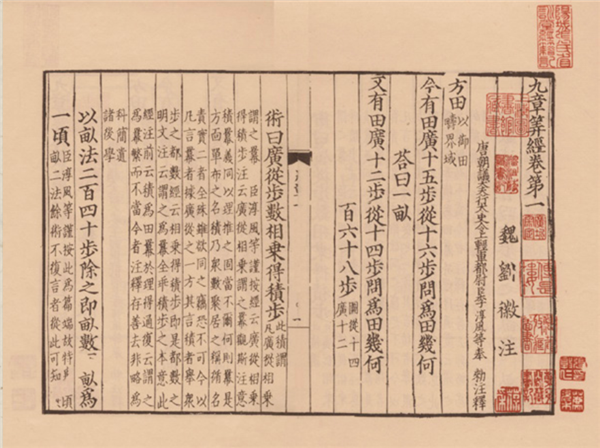 九章筭經卷第一
魏 劉徽 注
唐朝議大夫行太史令上輕車都尉臣李淳風等奉 勑注釋
方田 以御田疇界域
今有田廣十五步從十六步問爲田幾何
荅曰一畝
又有田廣十二步從十四步問爲田幾何
一百六十八步 圖從十四廣十二
術曰廣從步數相乘得積步 此積謂凡廣從相乘
謂之冪 臣淳風等謹按經云廣從相乘
得積步注云廣從相乘謂之冪觀斯注意
積冪義同以理推之固當不爾何則冪是
方面單布之名積乃衆數聚居之稱循名
責實二者全殊雖欲同之竊恐不可今以
凡言冪者據廣從之一方其言積者舉衆
步之都數經云相乘得積步即是都數之
明文注云謂之冪全乖積步之本意此
經注前云積爲田冪於理得通復云謂之
爲冪繁而不當今者注釋存善去非略爲
科簡遺
諸後學
以畝法二百四十步除之即畝數 畝爲
一頃 臣淳風等謹按此爲篇端故特舉頃
畝二法餘術不復言者從此可知